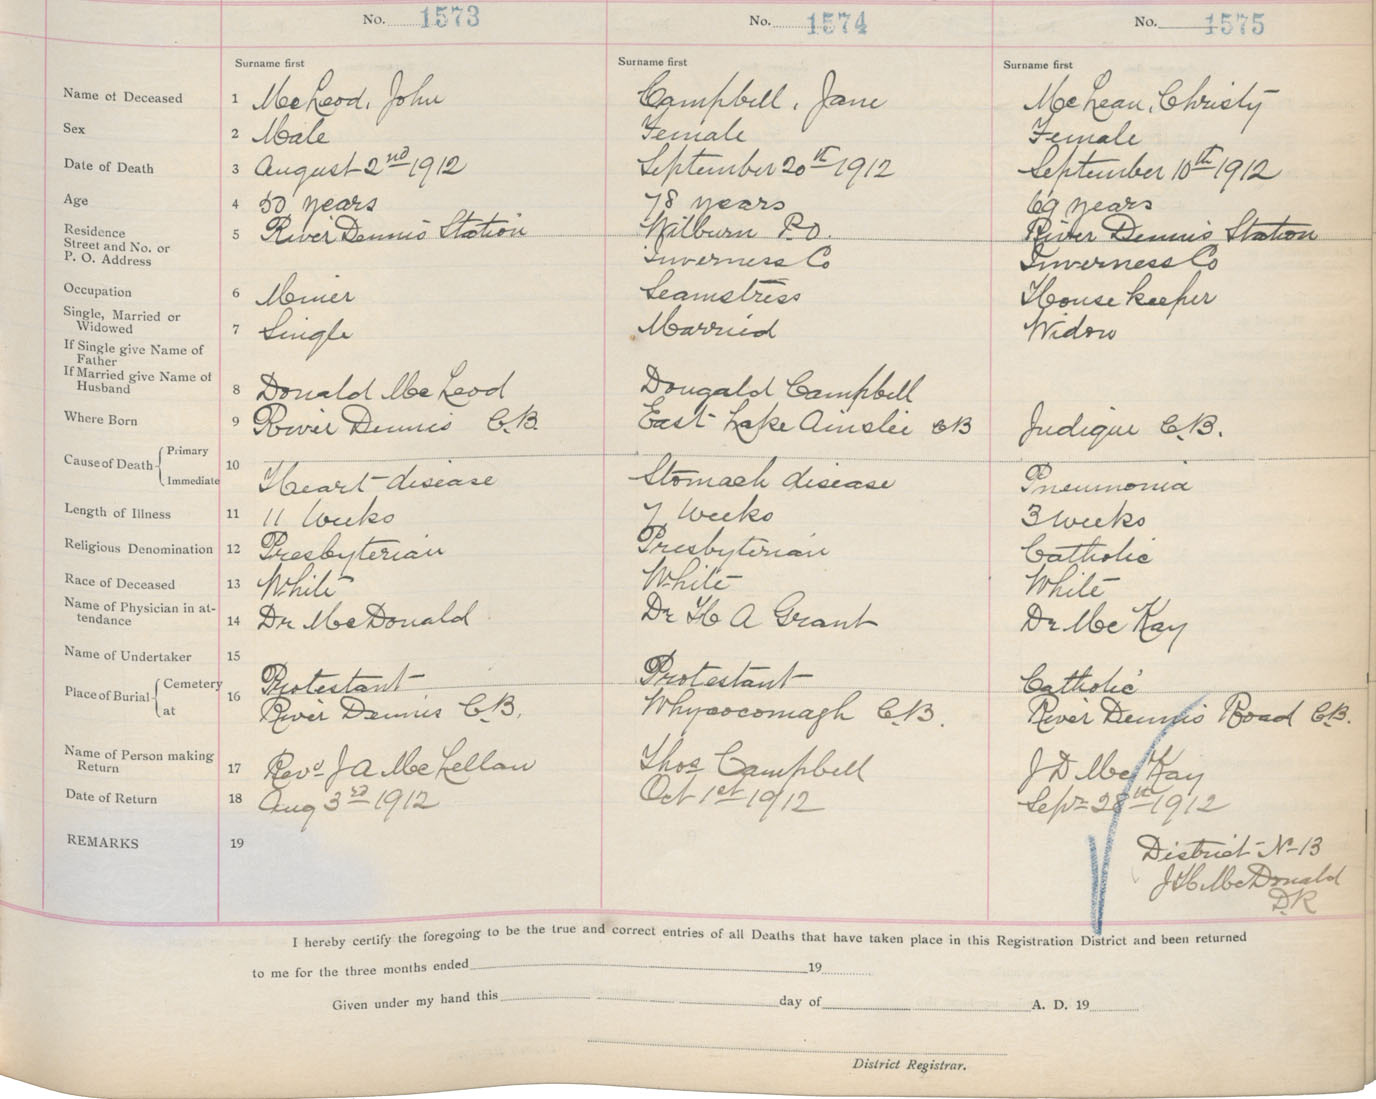 No. 1573 No. 1574 No. 1575
Surname first Surname first Surname first
Name of Deceased 1 McLeod, John Campbell, Jane McLean, Christy
Sex 2 Male Female Female
Date of Death 3 August 2nd 1912 September 20th 1912 September 10th 1912
Age 4 50 years 78 years 69 years
Residence
Street and No. or
P. O. Address
5 River Dennis Station Milburn P.O. River Dennis Station
Inverness Co Inverness Co
Occupation 6 Miner Seamstress Housekeeper
Single, Married or
Widowed
7 Single Married Widow
If Single give Name of
Father
If Married give Name of
Husband
8 Donald McLeod Dougald Campbell
Where Born 9 River Dennis C.B. East Lake Ainslie CB Judique C.B.
Cause of Death Primary
Immediate
10 Heart disease Stomach disease Pneumonia
Length of Illness 11 11 weeks 7 weeks 3 weeks
Religious Denomination 12 Presbyterian Presbyterian Catholic
Race of Deceased 13 White White White
Name of Physician in at-
tendance
14 Dr McDonald Dr H A Grant Dr McKay
Name of Undertaker 15
Place of Burial Cemetery
at
16 Protestant Protestant Catholic
River Dennis C.B. Whycocomagh C.B. River Dennis Road C.B.
Name of Person making
Return
17 Revd J A McLellan Thos Campbell J D McKay
Date of Return 18 Aug 3rd 1912 Oct 1st 1912 Sept 28th 1912
REMARKS 19
District No 13
J H McDonald
D.R
I hereby certify the foregoing to be the true and correct entries of all Deaths that have taken place in this Registration District and been returned
to me for the three months ended 19
Given under my hand this day of A. D. 19
District Registrar.